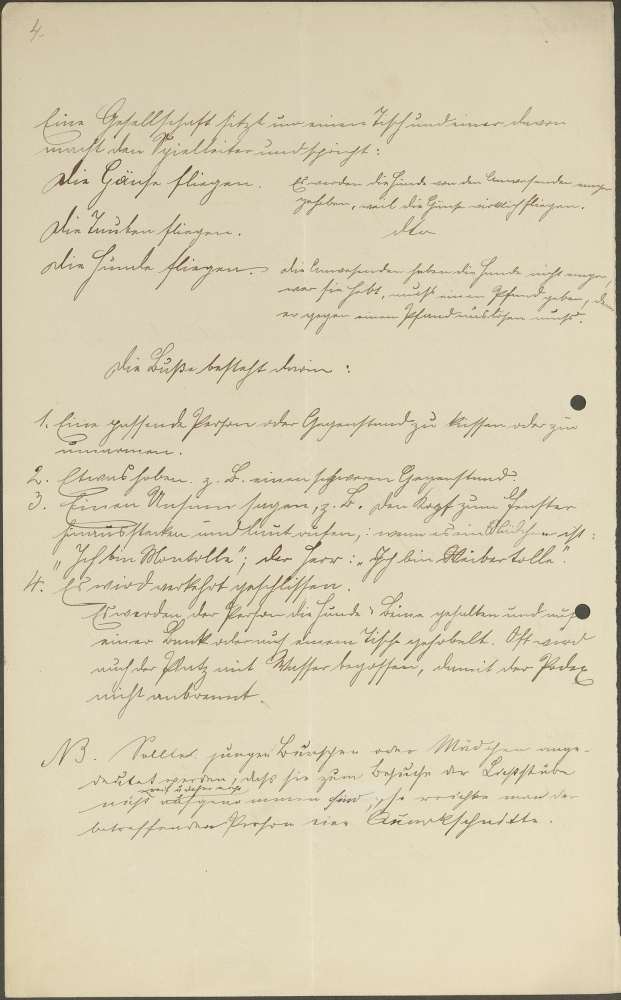 4.
Eine Gesellschaft sitzt um einen Tisch und einer davon
macht den Spielleiter und spricht:
Die Gänse fliegen. Es werden die Hände von den Anwesenden empor
gehoben, weil die Gänse wirklich fliegen.
Die Tauben fliegen. dto
Die Hunde fliegen. Die Anwesenden heben die Hände nicht empor,
wer sie hebt, muß einen Pfand geben, den
er gegen einen Pfand auslösen muß.
Die Buße besteht darin:
1. Eine passende Person oder Gegenstand zu küssen oder zu
umarmen.
2. Etwas heben. z. B. einen schweren Gegenstand.
3. Einen Unsinn sagen, z. B. den Kopf zum Fenster
hinausstecken und laut rufen, : wenn es ein Mädchen ist :
"Ich bin Mantolle"; der Herr: "Ich bin Weibertolle".
4. Es wird verkehrt geschlissen.
Es werden der Person die Hände & Beine gehalten und auf
einer Bank oder auf einem Tisch gehobelt. Oft wird
auch der Platz mit Wasser begossen, damit der Podex
nicht anbrennt.
NB. Sollten jungen Burschen oder Mädchen ange-
deutet werden, daß sie zum Besuche der Lichtstube
nicht aufgenommen sind, so reichte man der
betreffenden Person eine Quarkschnitte.